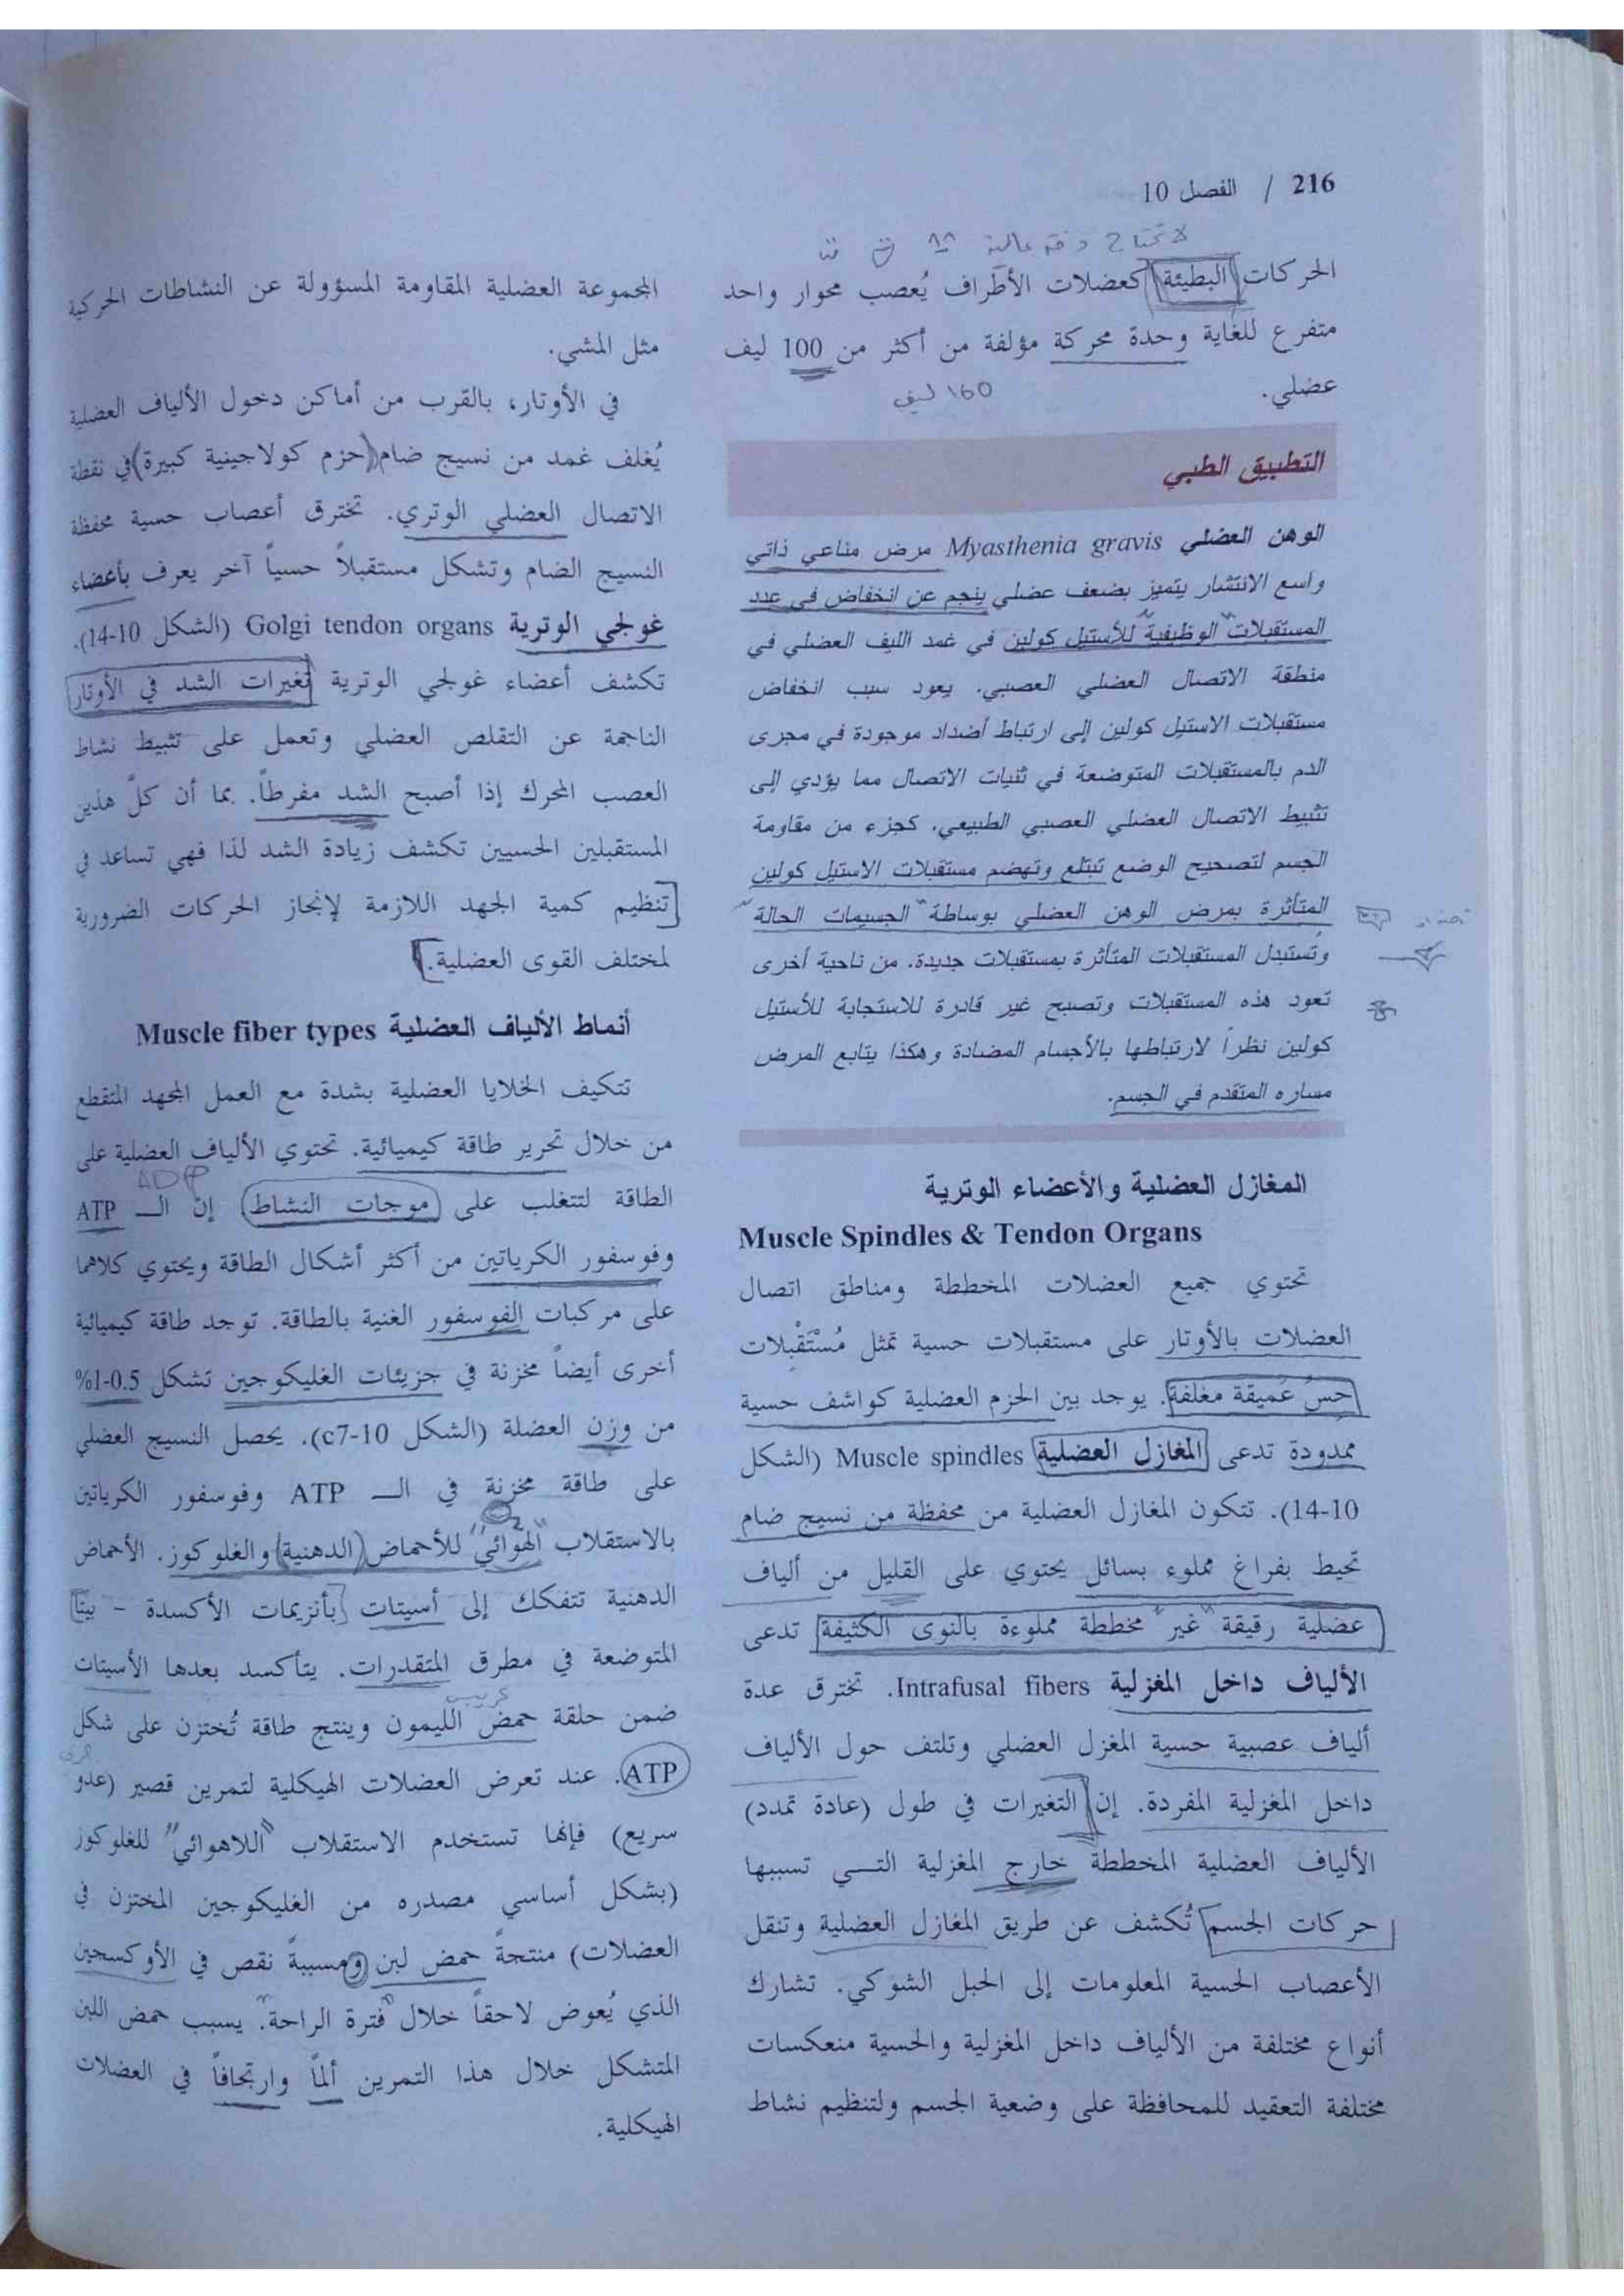 216 / الفصل 10
لا تحتاج دقة عالية
الحركات البطيئة كعضلات الأطراف يُعصب محوار واحد
متفرع للغاية وحدة محركة مؤلفة من أكثر من 100 ليف
عضلي.
160 ليف
التطبيق الطبي
الوهن العضلي Myasthenia gravis مرض مناعي ذاتي
واسع الانتشار يتميز بضعف عضلي ينجم عن انخفاض في عدد
المستقبلات الوظيفية للأستيل كولين في غمد الليف العضلي في
منطقة الاتصال العضلي العصبي. يعود سبب انخفاض
مستقبلات الاستيل كولين إلى ارتباط أضداد موجودة في مجرى
الدم بالمستقبلات المتوضعة في ثنيات الاتصال مما يؤدي إلى
تثبيط الاتصال العضلي العصبي الطبيعي. كجزء من مقاومة
الجسم لتصحيح الوضع تبتلع وتهضم مستقبلات الاستيل كولين
المتأثرة بمرض الوهن العضلي بوساطة الجسيمات الحالة
وتستبدل المستقبلات المتأثرة بمستقبلات جديدة. من ناحية أخرى
تعود هذه المستقبلات وتصبح غير قادرة للاستجابة للأستيل
كولين نظراً لارتباطها بالأجسام المضادة وهكذا يتابع المرض
مساره المتقدم في الجسم.
المغازل العضلية والأعضاء الوترية
Muscle Spindles & Tendon Organs
تحتوي جميع العضلات المخططة ومناطق اتصال
العضلات بالأوتار على مستقبلات حسية تمثل مُسْتَقْبِلات
حِسّ عَميقة مغلفة. يوجد بين الحزم العضلية كواشف حسية
ممدودة تدعى المغازل العضلية Muscle spindles (الشكل
10-14). تتكون المغازل العضلية من محفظة من نسيج ضام
تحيط بفراغ مملوء بسائل يحتوي على القليل من ألياف
عضلية رقيقة "غير" مخططة مملوءة بالنوى الكثيفة تدعى
الألياف داخل المغزلية Intrafusal fibers. تخترق عدة
ألياف عصبية حسية المغزل العضلي وتلتف حول الألياف
داخل المغزلية المفردة. إن التغيرات في طول (عادة تمدد)
الألياف العضلية المخططة خارج المغزلية التي تسببها
حركات الجسم تُكشف عن طريق المغازل العضلية وتنقل
الأعصاب الحسية المعلومات إلى الحبل الشوكي. تشارك
أنواع مختلفة من الألياف داخل المغزلية والحسية منعكسات
مختلفة التعقيد للمحافظة على وضعية الجسم ولتنظيم نشاط
المجموعة العضلية المقاومة المسؤولة عن النشاطات الحركية
مثل المشي.
في الأوتار، بالقرب من أماكن دخول الألياف العضلية
يُغلف غمد من نسيج ضام (حزم كولاجينية كبيرة) في نقطة
الاتصال العضلي الوتري. تخترق أعصاب حسية محفظة
النسيج الضام وتشكل مستقبلاً حسياً آخر يعرف بأعضاء
غولجي الوترية Golgi tendon organs (الشكل 10-14).
تكشف أعضاء غولجي الوترية تغيرات الشد في الأوتار
الناجمة عن التقلص العضلي وتعمل على تثبيط نشاط
العصب المحرك إذا أصبح الشد مفرطاً. بما أن كلّ هذين
المستقبلين الحسيين تكشف زيادة الشد لذا فهي تساعد في
تنظيم كمية الجهد اللازمة لإنجاز الحركات الضرورية
لمختلف القوى العضلية.
أنماط الألياف العضلية Muscle fiber types
تتكيف الخلايا العضلية بشدة مع العمل المجهد المتقطع
من خلال تحرير طاقة كيميائية. تحتوي الألياف العضلية على
ADP
الطاقة لتتغلب على موجات النشاط إنّ الـ ATP
وفوسفور الكرياتين من أكثر أشكال الطاقة ويحتوي كلاهما
على مركبات الفوسفور الغنية بالطاقة. توجد طاقة كيميائية
أخرى أيضاً مخزنة في جزيئات الغليكوجين تشكل 0.5-1%
من وزن العضلة (الشكل 10-7c). يحصل النسيج العضلي
على طاقة مخزنة في الـ ATP وفوسفور الكرياتين
O2
بالاستقلاب "الهوائي" للأحماض (الدهنية) والغلوكوز. الأحماض
الدهنية تتفكك إلى أسيتات بأنزيمات الأكسدة - بيتا
المتوضعة في مطرق المتقدرات. يتأكسد بعدها الأسيتات
كريبس
ضمن حلقة حمض الليمون وينتج طاقة تُختزن على شكل
ATP. عند تعرض العضلات الهيكلية لتمرين قصير (عدو
جري
سريع) فإنها تستخدم الاستقلاب "اللاهوائي" للغلوكوز
(بشكل أساسي مصدره من الغليكوجين المختزن في
العضلات) منتجةً حمض لبن ومسببةً نقص في الأوكسجين
الذي يُعوض لاحقاً خلال "فترة الراحة". يسبب حمض اللبن
المتشكل خلال هذا التمرين ألماً وارتجافاً في العضلات
الهيكلية.